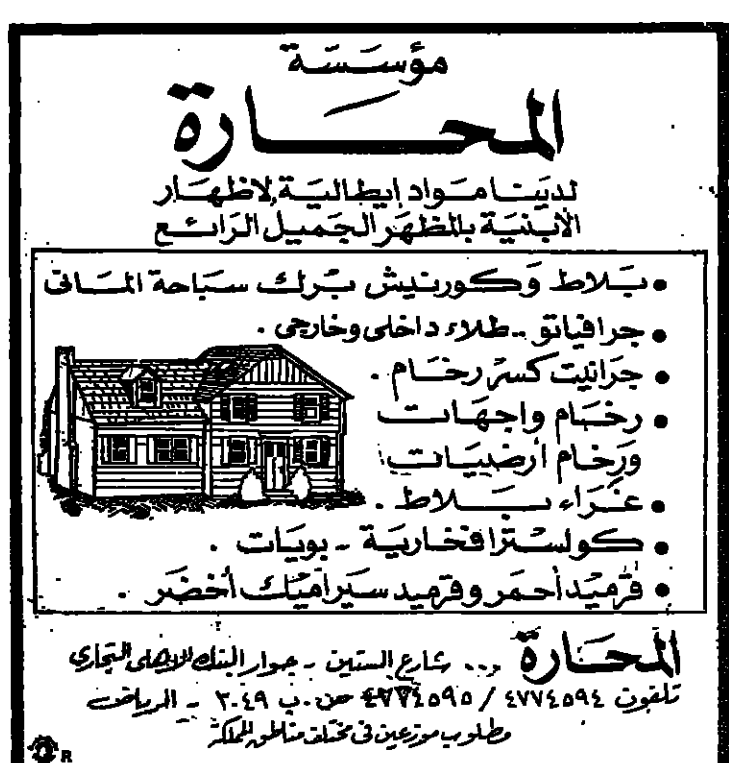 مؤسسة
المحارة
لدينا مواد إيطالية لاظهار
الأبنية بالمظهر الجميل الرائع
• بلاط وكورنيش برك سباحة
• جرافياتو - طلاء داخلى وخارجى .
• جرانيت كسر رخام .
• رخام واجهات
ورخام أرضيات
• غراء بلاط .
• كولسترا فخارية - بويات .
• قرميد أحمر وقرميد سيراميك أخضر .
المحارة ... شارع الستين - جوار البنك الاهلى التجارى
تلفون ٤٧٧٤٥٩٤ / ٤٧٧٤٥٩٥ ص.ب ٣٠٤٩ - الرياض
مطلوب موزعين فى مختلف مناطق المملكة
R